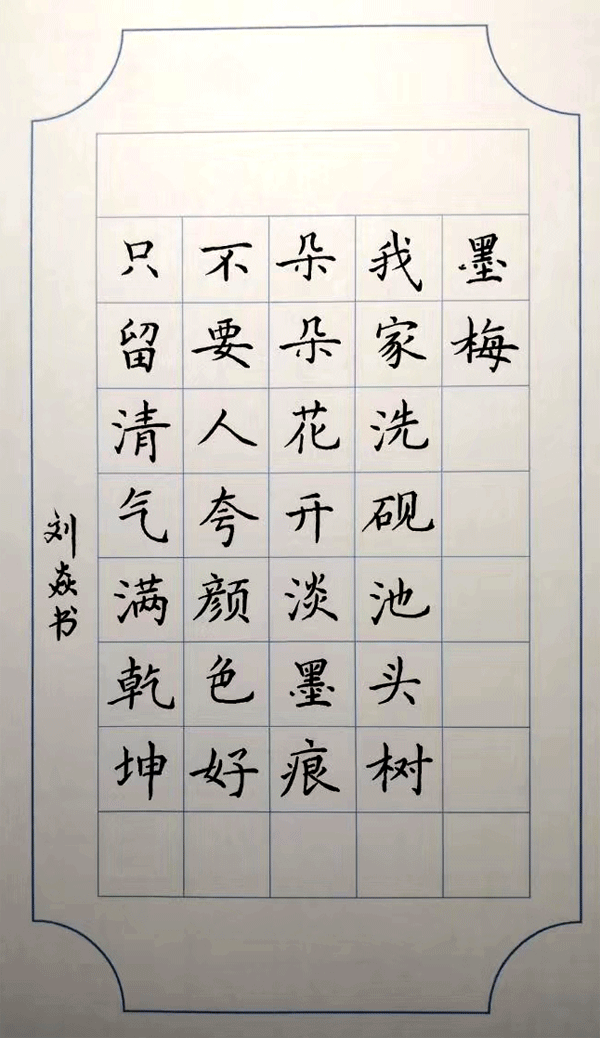 墨梅
我家洗砚池头树
朵朵花开淡墨痕
不要人夸颜色好
只留清气满乾坤
刘焱书